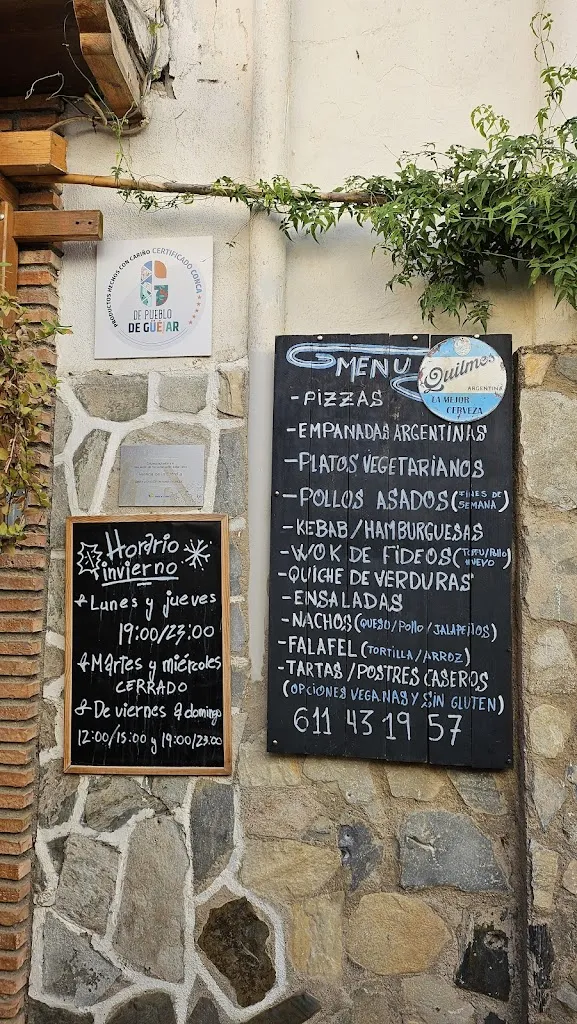 PRODUCTOS HECHOS CON CARIÑO CERTIFICADO CONCA
DE PUEBLO
DE GÜÉJAR
Horario
invierno
Lunes y jueves
19:00/23:00
Martes y miércoles
CERRADO
De viernes a domingo
12:00/18:00 y 19:00/23:00
MENU
Quilmes
ARGENTINA
LA MEJOR
CERVEZA
- PIZZAS
- EMPANADAS ARGENTINAS
- PLATOS VEGETARIANOS
- POLLOS ASADOS (FINES DE SEMANA)
- KEBAB/HAMBURGUESAS
- WOK DE FIDEOS (TOFU/POLLO HUEVO)
- QUICHE DE VERDURAS
- ENSALADAS
- NACHOS (QUESO/POLLO/JALAPEÑOS)
- FALAFEL (TORTILLA/ARROZ)
- TARTAS/POSTRES CASEROS
(OPCIONES VEGANAS Y SIN GLUTEN)
611 43 19 57